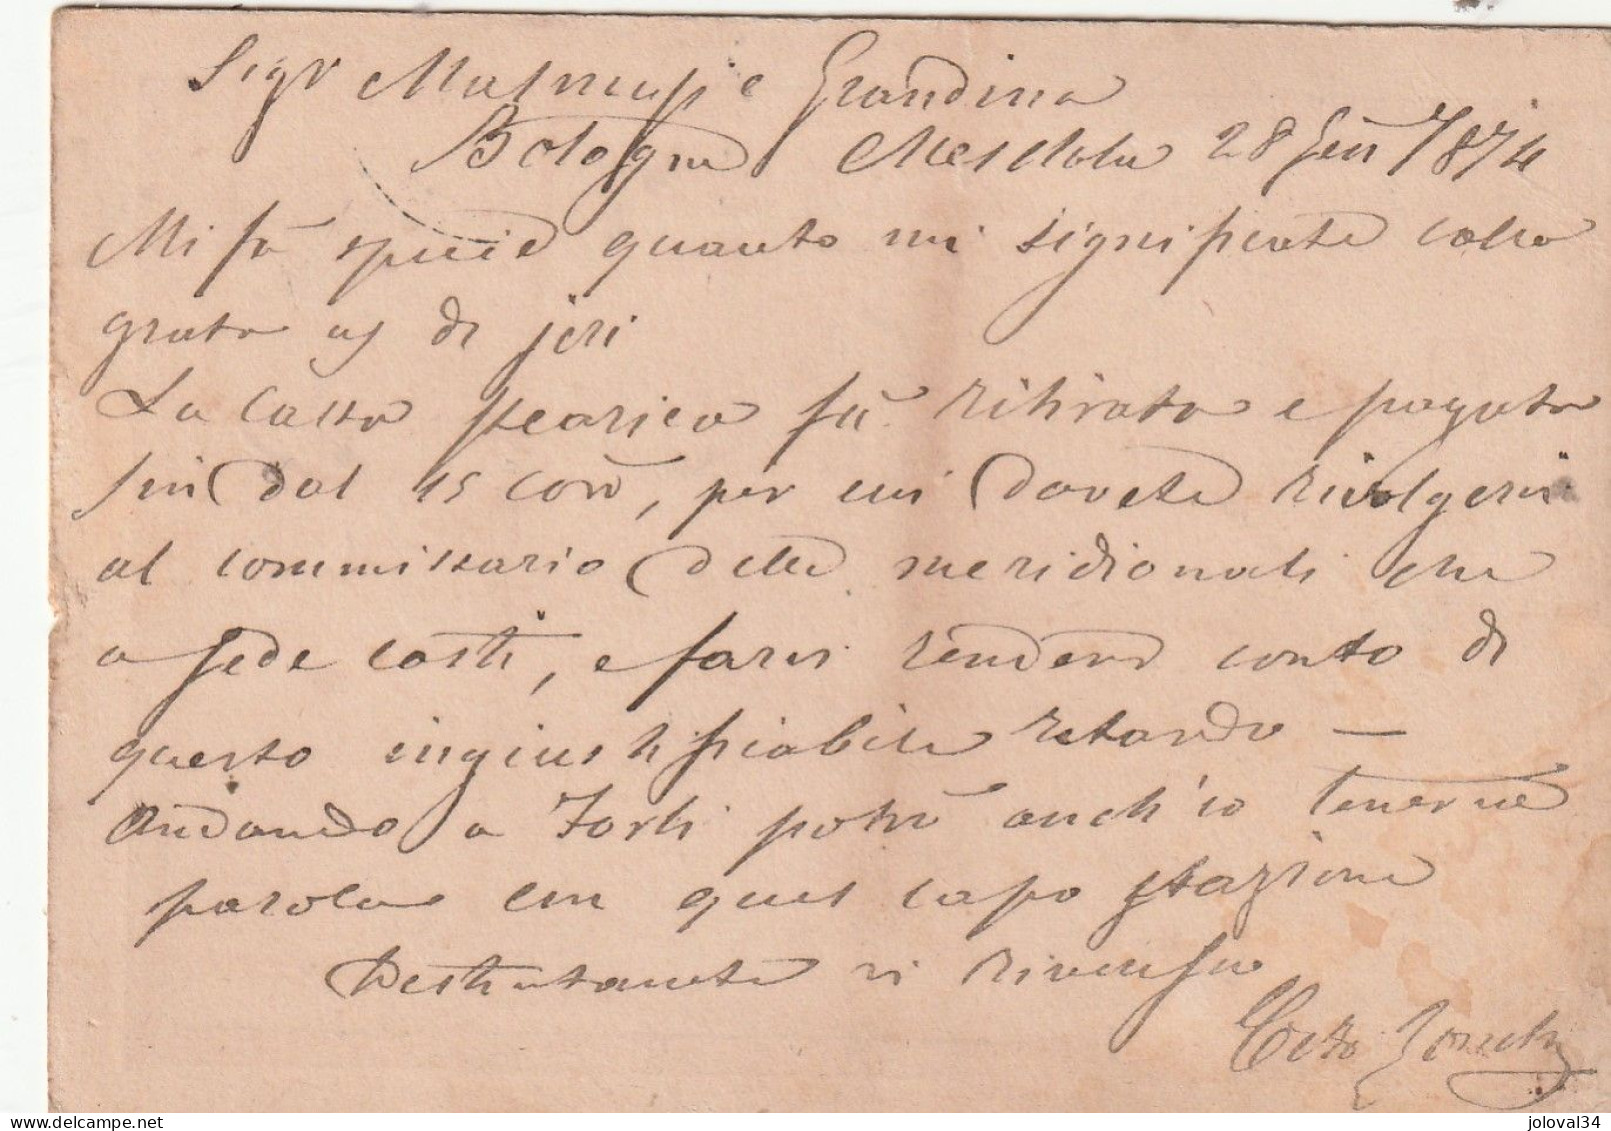 Sigr Malmusi e Grandina
Bologna Meldola 28 Gen 1874
Mi fà specie quanto mi significate colla
grata di jeri
La cassa stearica fù ritirata e pagata
fin dal 15 corr, per cui dovete rivolgervi
al commissario delle meridionali che
a sede costì, e farvi rendere conto di
questo ingiustificabile ritardo —
Andando a Forlì potrò anch'io tenerne
parola con quel capo stazione
Distintamente vi riverisco
delcampe.net
joloval34